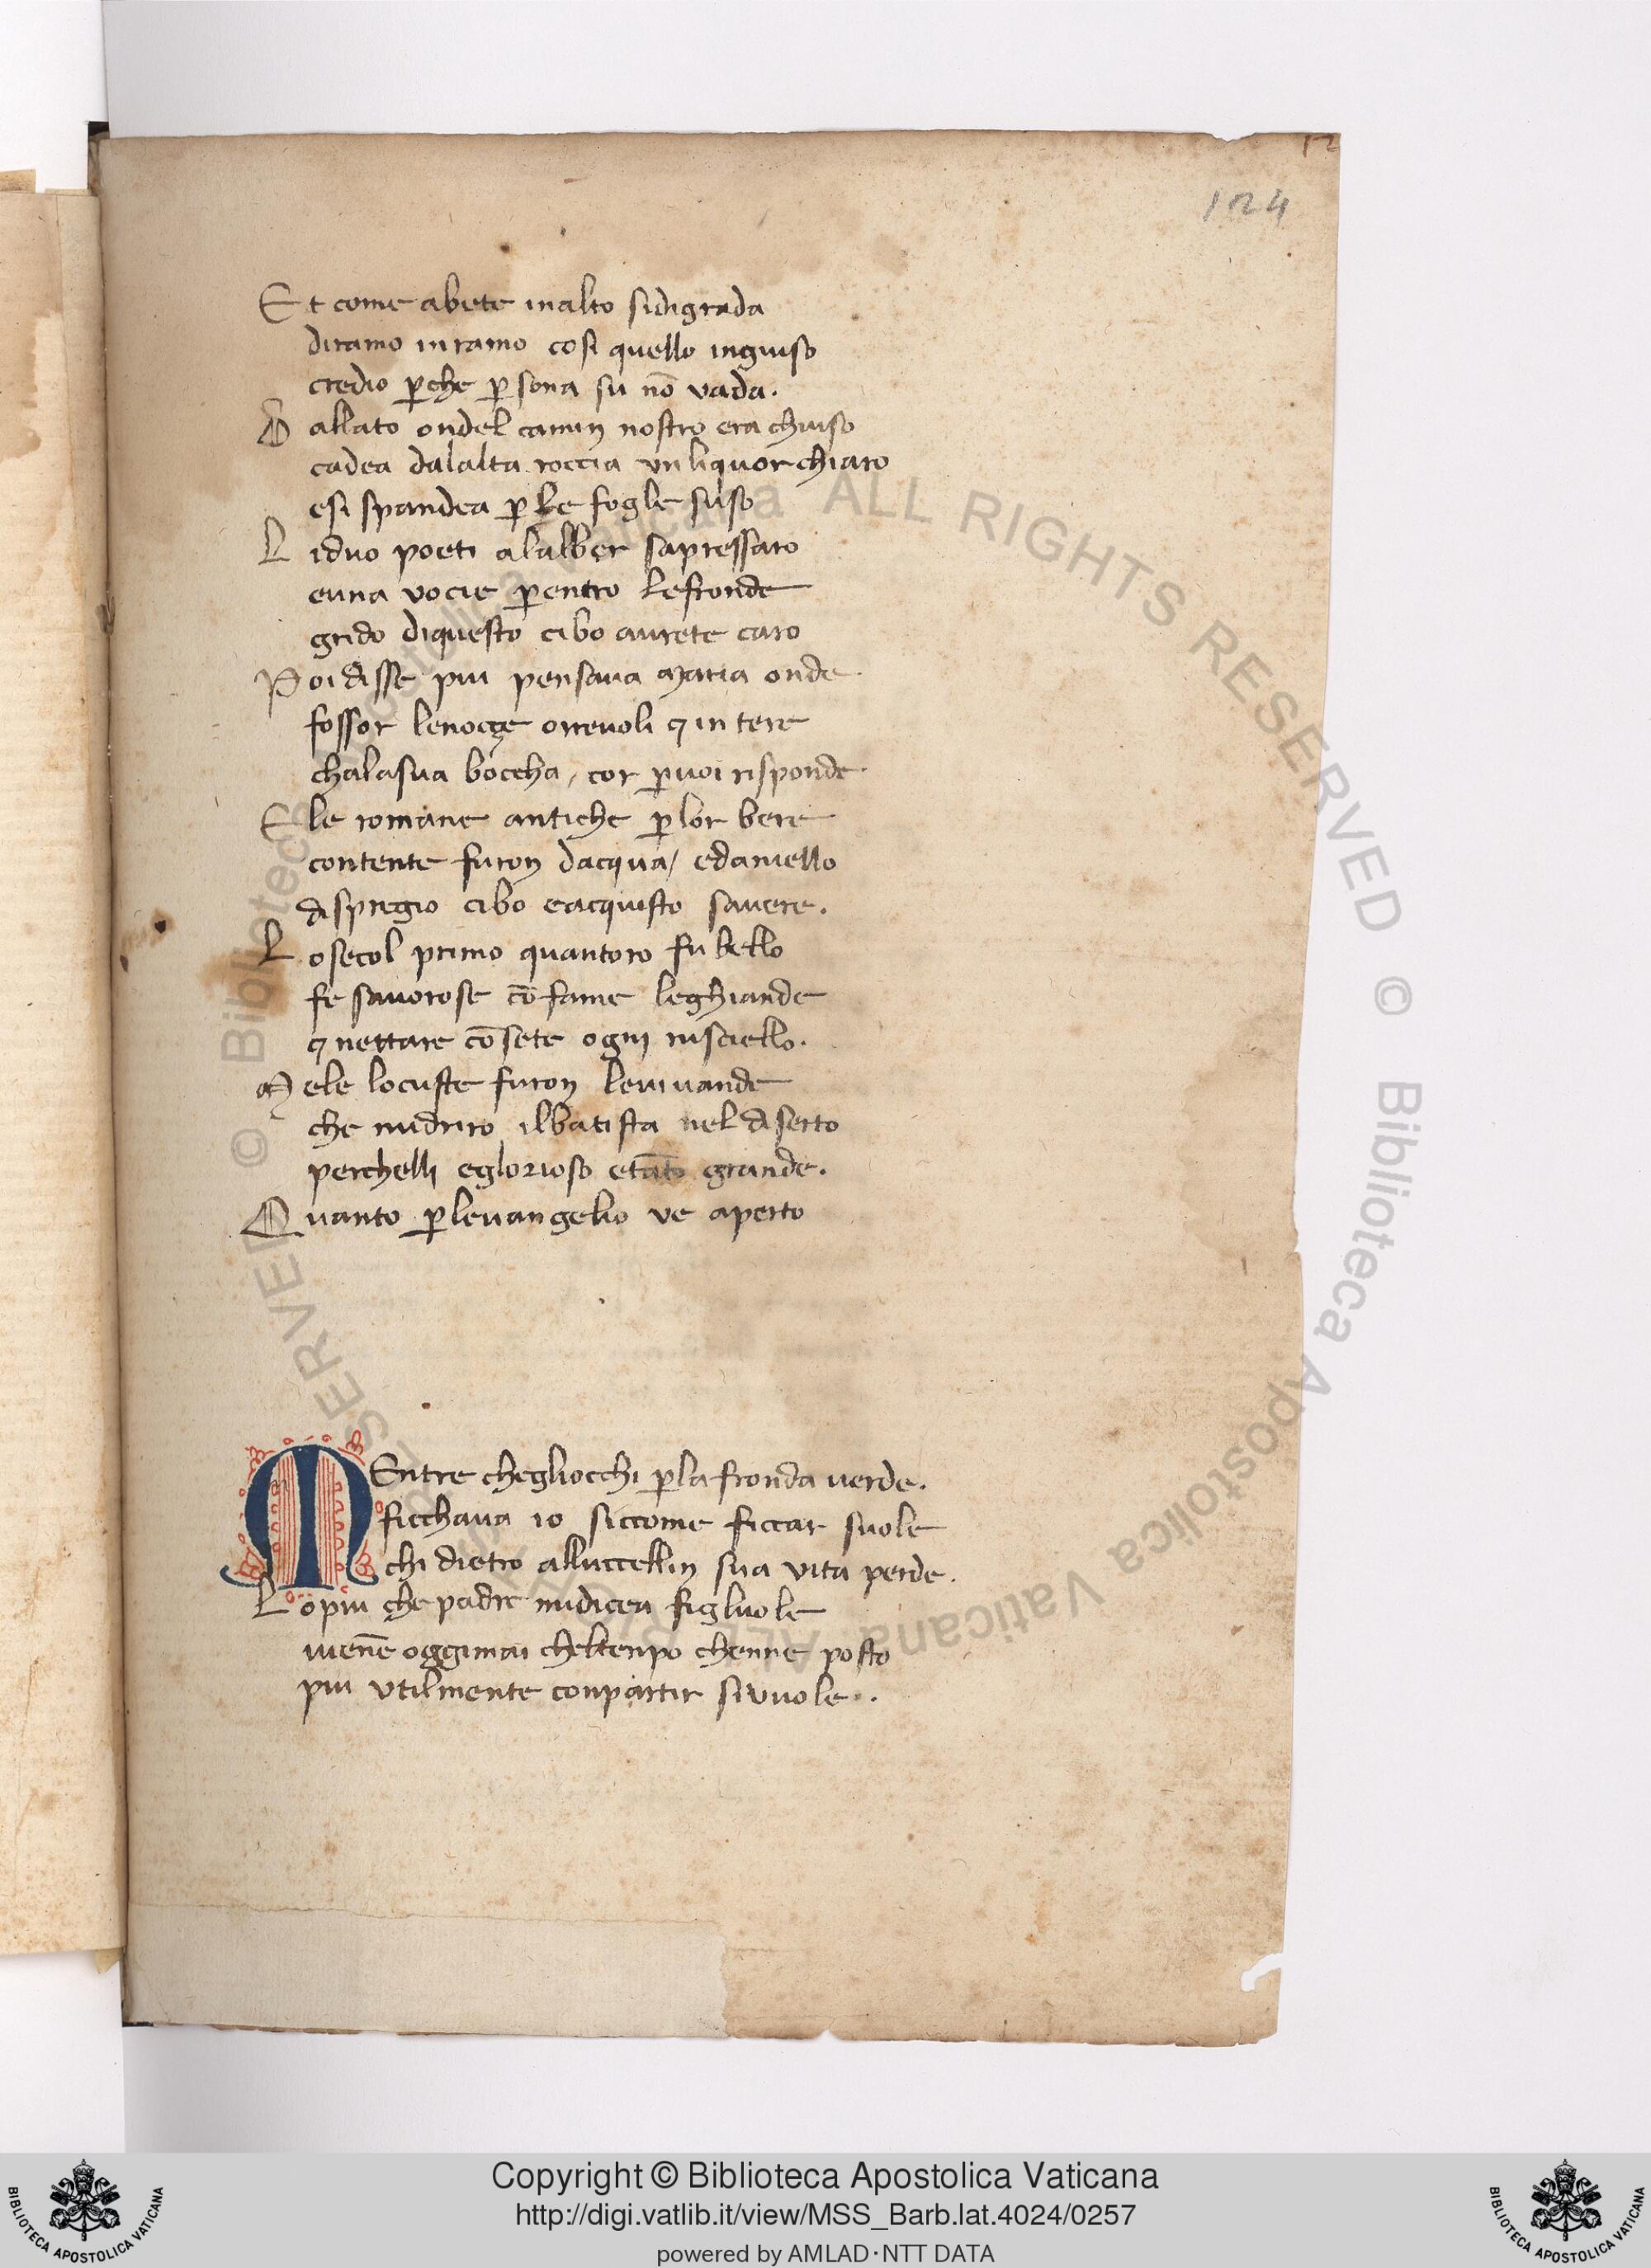 12
124
Et come abete inalto sidigrada
diramo inramo cosi quello ingiuso
credio ꝑche ꝑsona su nō vada.
Dallato ondel camin nostro era chiuso
cadea dalalta roccia vn liquor chiaro
esi spandea ꝑ le fogle suso
Liduo poeti alalber sapressaro
euna vocie ꝑentro lefronde
grido diquesto cibo aurete caro
Poi disse piu pensaua Maria onde
fossor lenoçce orreuoli ⁊ intere
chalasua boccha, cor ꝑuoi risponde
Ele romane antiche ꝑlor bere
contente furon dacqua, edaniello
dispregio cibo eacquisto sauere.
Losecol primo quantoro fu bello
fe sauorose cō fame leghiande
⁊ nettare cō sete ogni rusciello.
Mele locuste furon leuiuande
che nudriro ilbatista nel diserto
perchelli eglorioso etāto grande.
Quanto ꝑleuangelio ve aperto
MEntre chegliocchi ꝑla fronda uerde.
ficchaua io siccome ficcar suole
chi dietro alluccellin sua vita perde.
Lopiu che padre midicea figluole
uienē oggimai cheltenpo chenne posto
piu vtilmente conpartir sivuole..
© Biblioteca Apostolica Vaticana ALL RIGHTS RESERVED © Biblioteca Apostolica Vaticana ALL RIGHTS RESERVED
Copyright © Biblioteca Apostolica Vaticana
http://digi.vatlib.it/view/MSS_Barb.lat.4024/0257
powered by AMLAD·NTT DATA
BIBLIOTECA APOSTOLICA VATICANA
BIBLIOTECA APOSTOLICA VATICANA